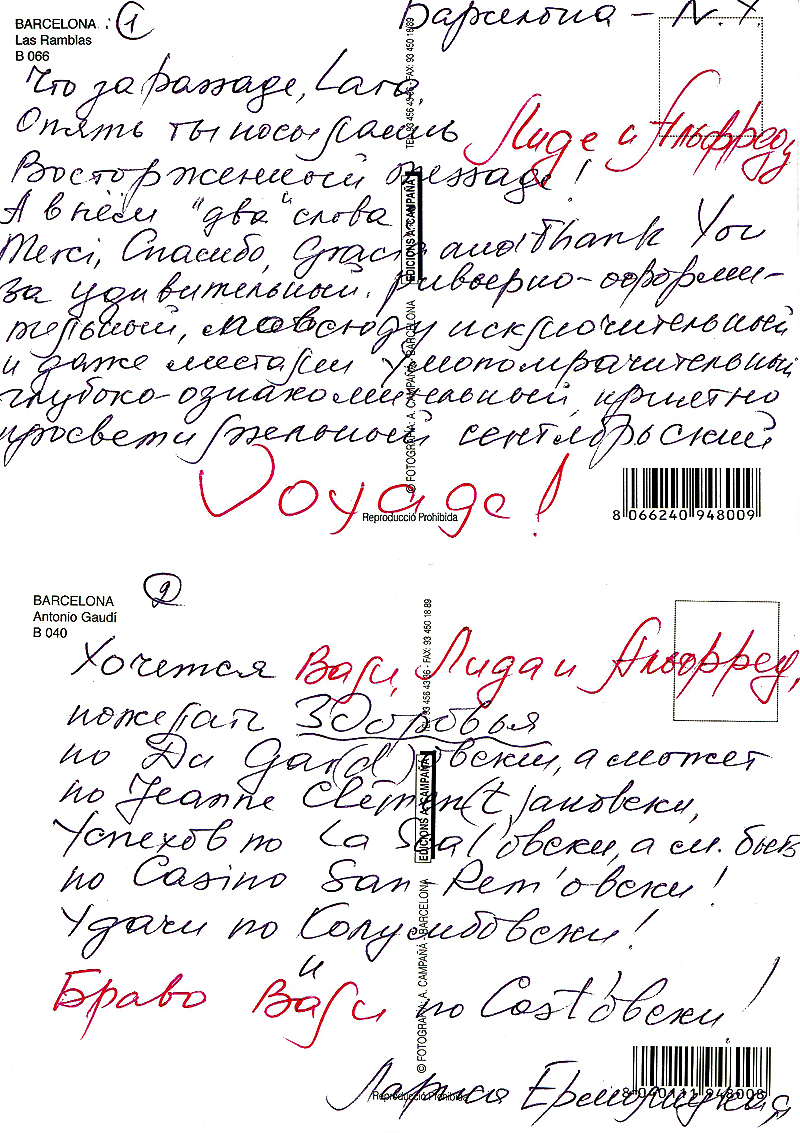 BARCELONA
Las Ramblas
B 066
1
Барселона – N.Y.
Что за passage, Lara,
Опять ты посылаешь Лиде и Альфреду
Восторженный message!
А в нём "два" слова
Merci, Спасибо, Gracias and Thank You
За удивительный, ривьерно-оформи-
тельный, повсюду исключительный
и даже местами умопомрачительный
глубоко-ознакомительный, приятно
просветительный сентябрьский
Voyage!
TEL. 93 456 43 06 - FAX: 93 450 18 89
EDICIONS A. CAMPAÑA
© FOTOGRAFIA: A. CAMPAÑA - BARCELONA
Reproducció Prohibida
8 066240 948009
BARCELONA
Antonio Gaudí
B 040
2
Хочется Вам, Лида и Альфред,
пожелать Здоровья
по Du Gar(d)овски, а может
по Jeanne Clémen(t)ановски,
Успехов по La Scal'овски, а м. быть
по Casino San-Rem'овски!
Удачи по Колумбовски!
и
Браво Вам по Cost'овски!
Лариса
TEL. 93 456 43 06 - FAX: 93 450 18 89
EDICIONS A. CAMPAÑA
© FOTOGRAFIA: A. CAMPAÑA - BARCELONA
Reproducció Prohibida